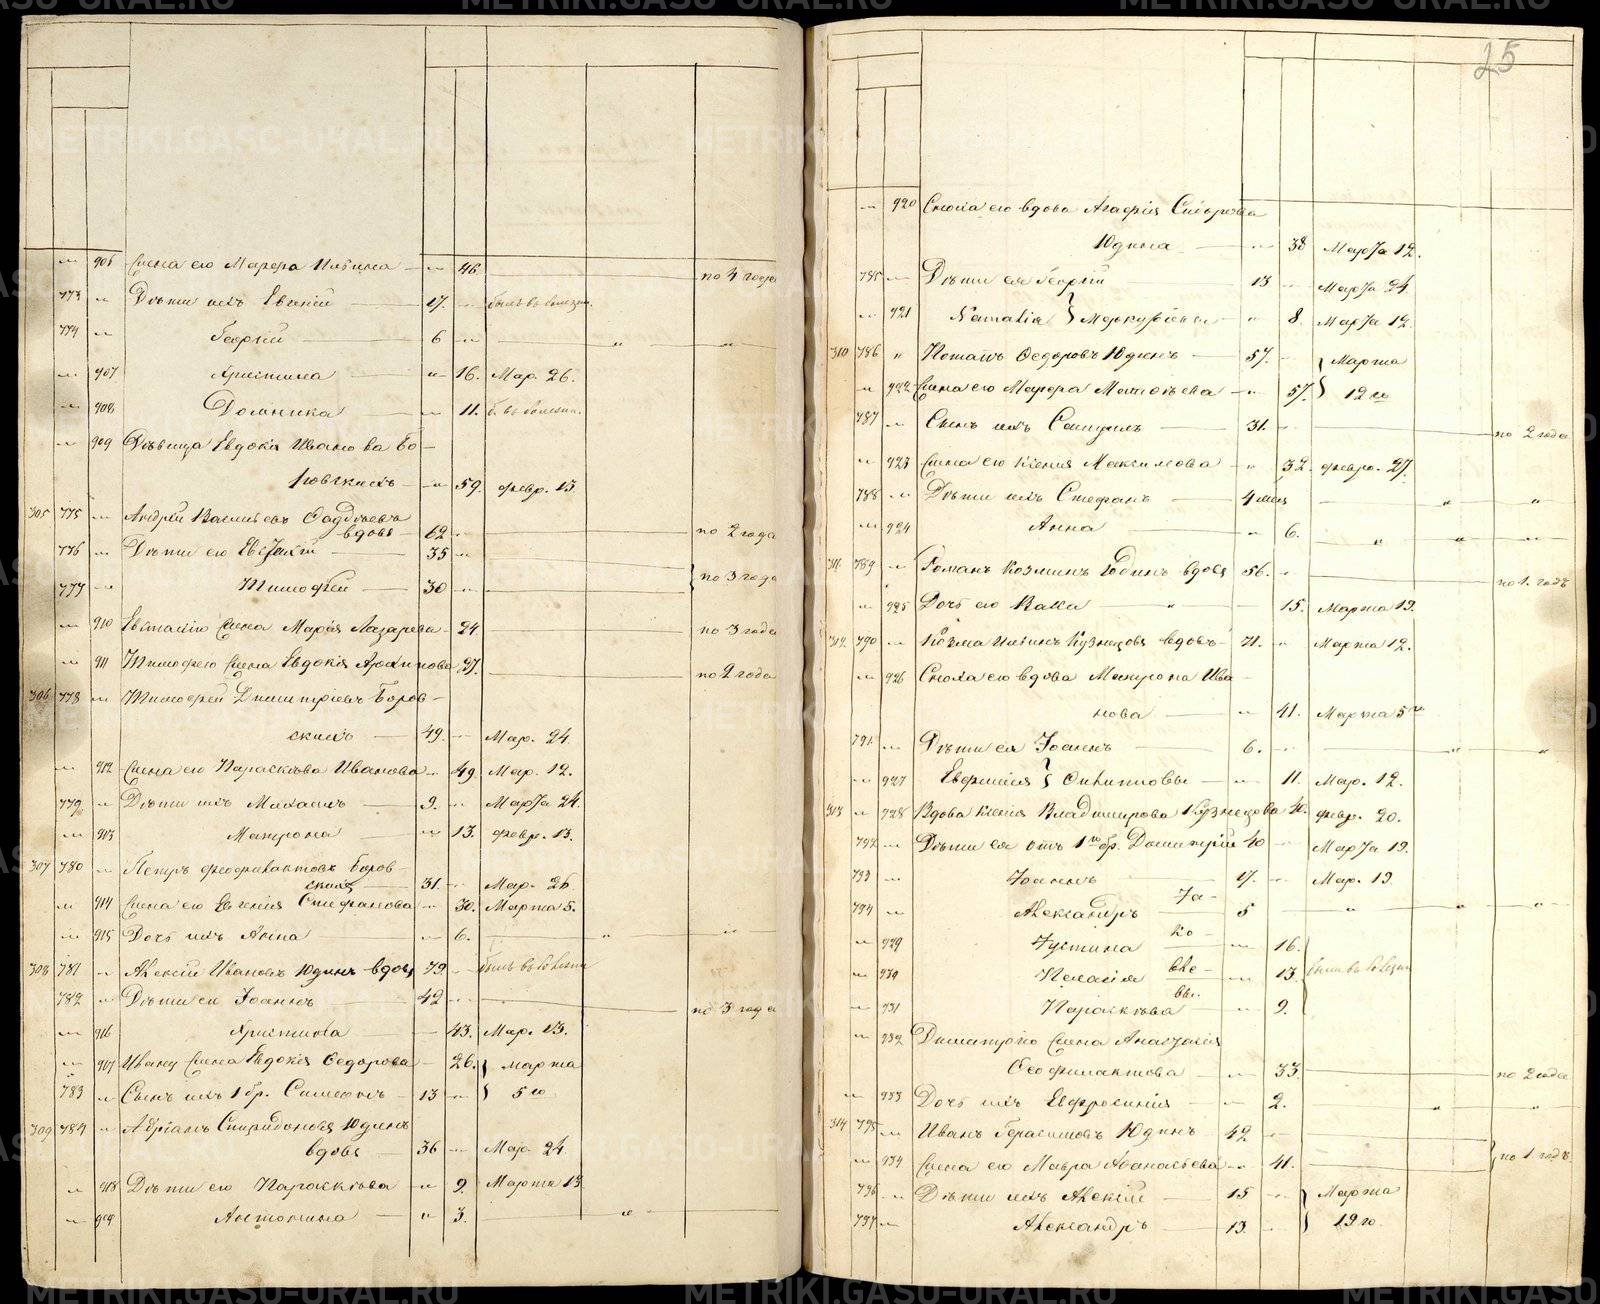 906 Жена его Марфа Ильина — 46. по 4 года
773 Дѣти ихъ Евгений 17. былъ въ болезни.
774 Георгий 6
907 Христина 16. Мар. 26.
908 Домника 11. б. въ болезни.
909 Дѣвица Евдокія Иванова Бо-
ровскихъ 59. февр. 13.
305 775 Андрей Васильевъ
вдовъ 62 по 2 года
776 Дѣти его 35
777 Тимофей 30 по 3 года
910 жена Марія Лазарева 24. по 3 года
911 Тимофею жена Евдокія Архипова 27. по 2 года
306 778 Тимофей Димитріевъ Боров-
скихъ 49. Мар. 24.
912 Жена его Параскева Иванова 49. Мар. 12.
779 Дѣти ихъ Михаилъ 9. Марта 24.
913 Матрона 13. февр. 13.
307 780 Петръ Феофилактовъ Боров-
скихъ 31. Мар. 26
914 Жена его Евгенія Стефанова 30. Марта 5.
915 Дочь ихъ Анна 6.
308 781 Алексій Ивановъ Юдинъ вдовъ 79. былъ въ болезни
782 Дѣти ея Іоаннъ 42 по 3 года
916 Христина 43. Мар. 13.
917 Ивану жена Евдокія Федорова 26. } марта
783 Сынъ ихъ 1 бр. Симеонъ 13 } 5 го
309 784 Адріанъ Спиридоновъ Юдинъ
вдовъ 36 Мар. 24.
918 Дѣти его Параскева 9. Марта 13
919 Антонина 3.
25
920 Сноха его вдова Агафія Сидорова
Юдина 38 Марта 12.
785 Дѣти ея Георгий 13 Марта 24.
921 Наталія } Меркурьевы 8. Марта 12.
310 786 Потапъ Федоровъ Юдинъ 57. } Марта
922 Жена его Марфа Матвѣева 57. } 12 го
787 Сынъ ихъ 31. по 2 года
923 Жена его Ксенія Максимова 32. февр. 27.
788 Дѣти ихъ Стефанъ 4 мес
924 Анна 6.
311 789 Романъ Козминъ Юдинъ вдовъ 56. по 1. годъ
925 Дочь его 15. Марта 19.
312 790 Козма Ильинъ Кузнецовъ вдовъ 71. Марта 12.
926 Сноха его вдова Матрона Ива-
нова 41. Марта 5 го
791 Дѣти ея Іоаннъ 6.
927 Евфимія } Филипповы 11. Мар. 12.
313 928 Вдова Ксенія Владимирова Кузнецова 40. февр. 20.
792 Дѣти ея отъ 1 го бр. Димитрій 40 Марта 19.
793 Іоаннъ 17. Мар. 19
794 Александръ Яко- 5
929 Іустина 16.
930 Пелагія вле- 13. были въ болезни
931 Параскева вы. 9.
932 Димитрію жена Анастасія
Феофилактова 33. по 2 года
933 Дочь ихъ Евфросинія 2.
314 795 Иванъ Герасимовъ Юдинъ 42
934 Жена его Мавра Афанасьева 41. } по 1. годъ
796 Дѣти ихъ Алексій 15 } Марта
797 Александръ 13. } 19 го.
METRIKI.GASO-URAL.RU